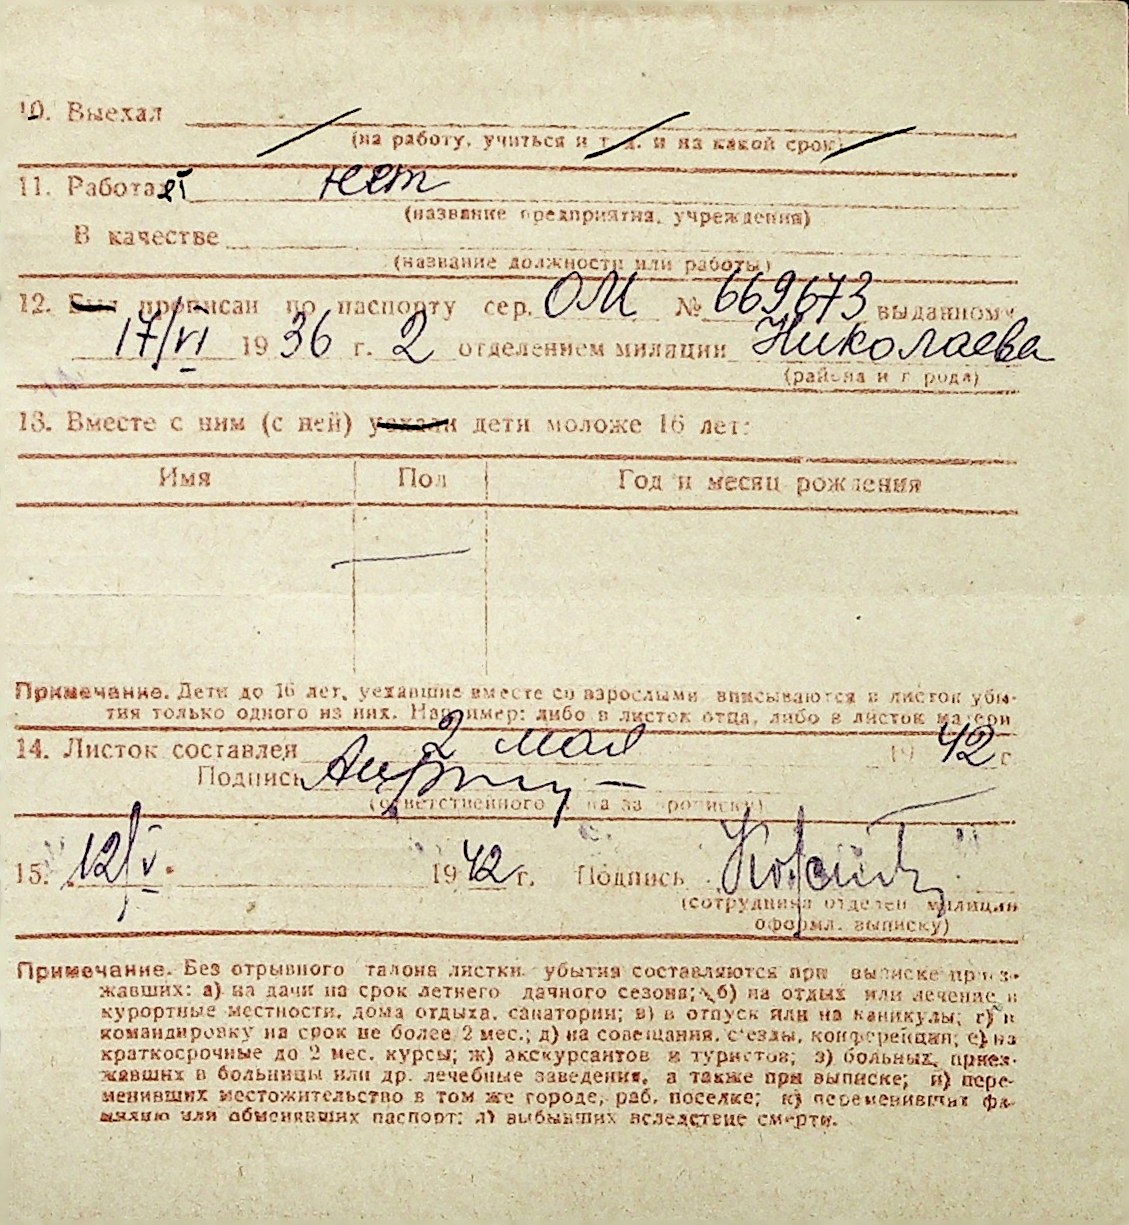 10. Выехал
(на работу, учиться и т. д. и на какой срок)
11. Работает нет
(название предприятия, учреждения)
В качестве
(название должности или работы)
12. Был прописан по паспорту сер. ОМ № 669673 выданному
17/VI 1936 г. 2 отделением милиции Николаева
(района и города)
13. Вместе с ним (с ней) уехали дети моложе 16 лет:
Имя Пол Год и месяц рождения
Примечание. Дети до 16 лет, уехавшие вместе со взрослыми вписываются в листок убы-
тия только одного из них. Например: либо в листок отца, либо в листок матери
14. Листок составлен 2 мая 1942 г
Подпись
(ответственного за прописку)
15. 12/V. 1942 г. Подпись
(сотрудника отделен. милиции
оформл. выписку)
Примечание. Без отрывного талона листки убытия составляются при выписке приез-
жавших: а) на дачи на срок летнего дачного сезона; б) на отдых или лечение в
курортные местности, дома отдыха, санатории; в) в отпуск или на каникулы; г) в
командировку на срок не более 2 мес.; д) на совещания, съезды, конференции; е) на
краткосрочные до 2 мес. курсы; ж) экскурсантов и туристов; з) больных, приез-
жавших в больницы или др. лечебные заведения, а также при выписке; и) пере-
менивших местожительство в том же городе, раб. поселке; к) переменивших фа-
милию или обменявших паспорт; л) выбывших вследствие смерти.